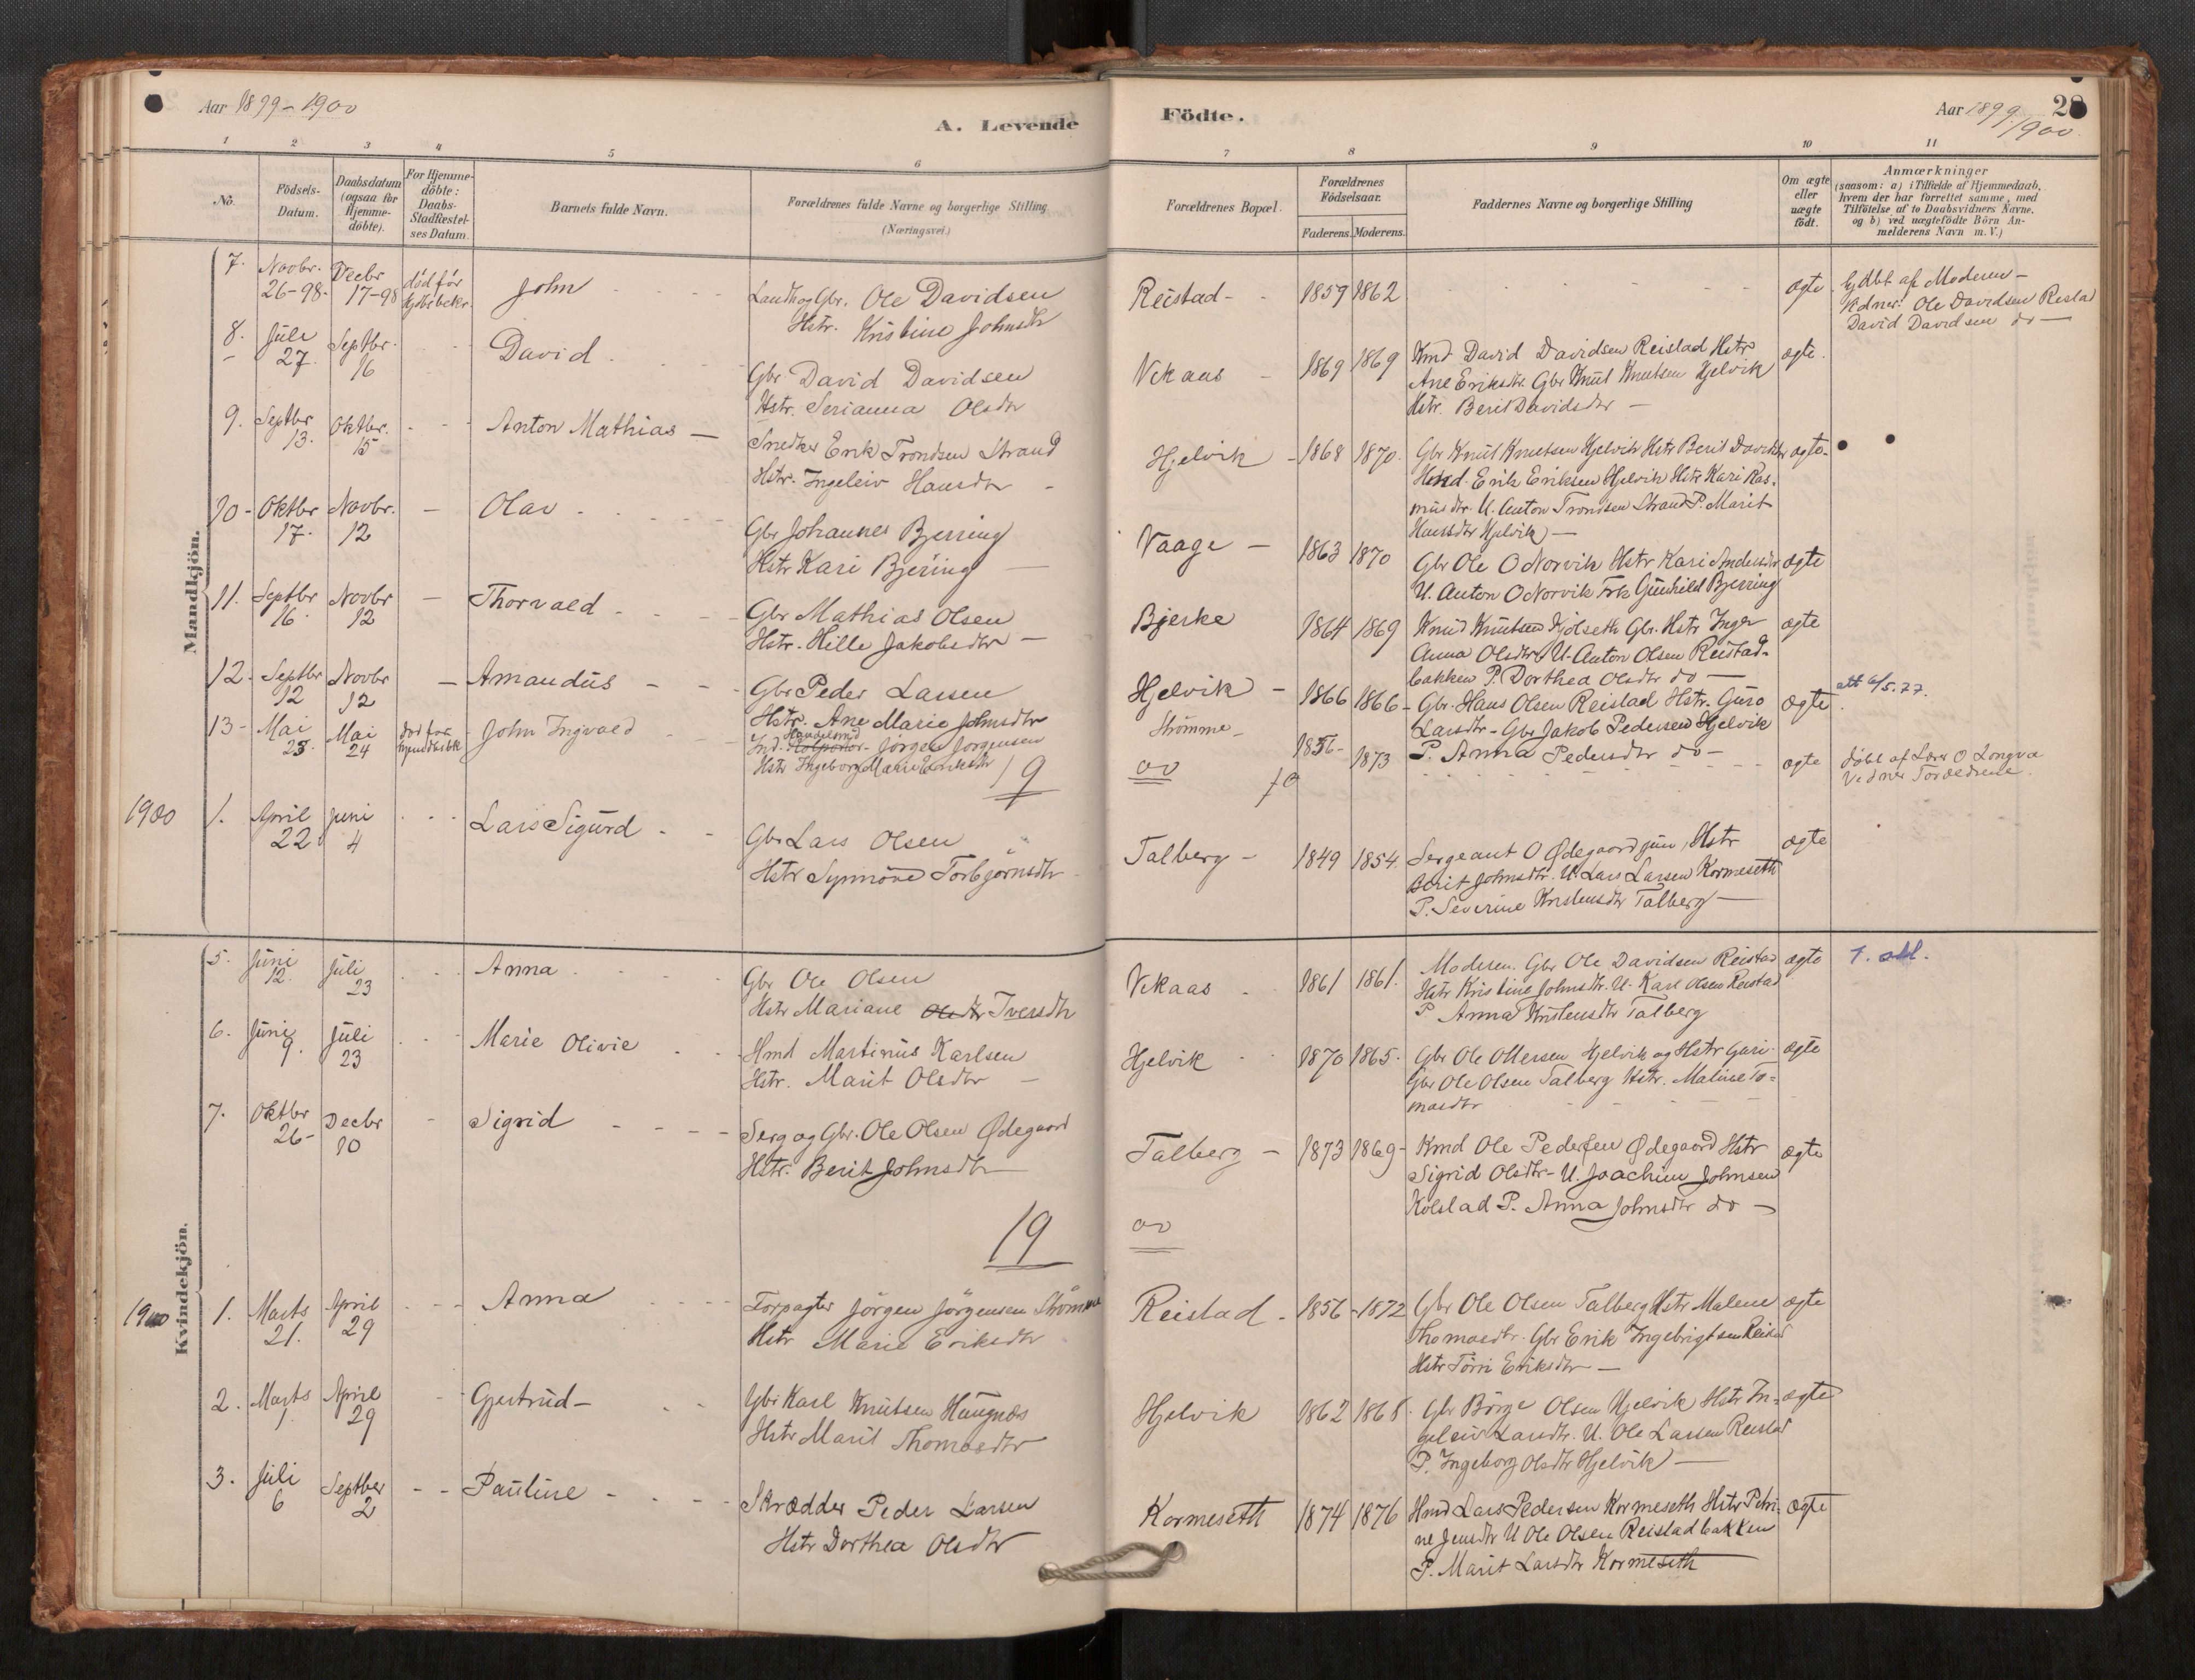 Aar 1899-1900
A. Levende
Födte.
Aar 1899/1900.
28
1 2 3 4 5 6 7 8 9 10 11
No.
Födsels-Datum.
Daabsdatum (ogsaa for Hjemme-döbte).
For Hjemme-döbte: Daabs-Stadfæstel-ses Datum.
Barnets fulde Navn.
Forældrenes fulde Navne og borgerlige Stilling (Næringsvei.)
Forældrenes Bopæl.
Forældrenes Födselsaar.
Faderens. Moderens.
Faddernes Navne og borgerlige Stilling
Om ægte eller uægte födt.
Anmærkninger
(saasom: a) i Tilfælde af Hjemmedaab,
hvem der har forrettet samme, med
Tilföielse af to Daabsvidners Navne,
og b) ved uægtefödte Börn An-
melderens Navn m. V.)
Mandkjön.
7. Novbr. 26-98. Decbr 17-98 död før John
Landh og Gbr. Ole Davidsen
Hstr. Kristine Johnsdtr
Reistad - 1859 1862 ægte
hjdbt af Moderen -
Vidner: Ole Davidsen Reistad
David Davidsen do -
8. Juli 27. Septbr. 16 David
Gbr David Davidsen
Hstr. Serianna Olsdtr
Vekaas - 1869 1869
Kmd David Davidsen Reistad Hstr
Ane Eriksdtr. Gbr Knut Knutsen Hjelvik
Hstr. Berit Davidsdtr -
ægte.
9. Septbr 13. Oktbr. 15 Anton Mathias -
Snedker Erik Trondsen Strand
Hstr. Ingeleiv Hansdtr -
Hjelvik - 1868 1870.
Gbr Knut Knutsen Hjelvik Hstr Berit Davidsdtr
Hmd. Erik Eriksen Hjelvik Hstr Kari Ras-
musdtr. U. Anton Trondsen Strand P. Marit
Hansdtr Hjelvik) -
ægte-
10- Oktbr 17. Novbr. 12 - Olav
Gbr Johannes Bjerring
Hstr Kari Bjering -
Vaage - 1863 1870
Gbr Ole O Norvik Hstr Kari Andersdtr
U. Anton O Norvik Frk Gunhild Bjerring
ægte
11. Septbr 16. Novbr 12 - Thorvald
Gbr Mathias Olsen
Hstr. Hille Jakobsdtr -
Bjerke 1864 1869
Knud Knutsen Kjölseth Gbr. Hstr Inger
Anna Olsdtr U. Anton Olsen Reistad-
bakken P. Dorthea Olsdtr do -
ægte
12- Septbr 12 Novbr 12 - Amandus
Gbr Peder Larsen
Hstr. Ane Marie Johnsdtr
Hjelvik - 1866 1866
Gbr. Hans Olsen Reistad Hstr. Guro
Larsdtr - Gbr Jakob Pedersen Hjelvik
P. Anna Pedersdtr do -
ægte
13- Mai 23. Mai 24 død før John Ingvald
Handelsmd
Ind. Kolportør - Jörgen Jörgensen
Hstr Ingeborg Marie Eriksdtr
19
Strömme - 1856- 1873 ægte
döbt af Lærer O Longva
Vidner Forældrene.
1900
1. April 22 Juni 4 Lars Sigurd
Gbr Lars Olsen
Hstr Synnöve Torbjörnsdtr
Talberg - 1849 1854.
Sergeant O Ødegaard jun, Hstr
Berit Johnsdtr. U. Lars Larsen Kormeseth
P. Severine Kristensdtr Talberg -
ægte
Kvindekjön.
5. Juni 12. Juli 23 Anna
Gbr Ole Olsen
Hstr Mariane Olsdtr Iversdtr
Vekaas 1861 1861.
Moderen. Gbr Ole Davidsen Reistad
Hstr Kristine Johnsdtr. U. Karl Olsen Reistad
P. Anna Kristensdtr Talberg
ægte
6. Juni 9. Juli 23 Marie Olivie
Hmd Martinus Karlsen
Hstr. Marit Olsdtr -
Hjelvik 1870 1865.
Gbr Ole Ottersen Hjelvik og Hstr Guri.
Gbr Ole Olsen Talberg Hstr. Maline To-
masdtr
ægte
7. Oktbr 26- Decbr 10 - Sigrid
Serg og Gbr. Ole Olsen Ødegaard
Hstr. Berit Johnsdtr
19
Talberg - 1873 1869-
Kmd Ole Pedersen Ødegaard Hstr
Sigrid Olsdtr - U. Joachim Johnsen
Kolstad P. Anna Johnsdtr do -
ægte
1900
1. Marts 21. April 29 Anna
Forpagter Jörgen Jörgensen Strömme
Hstr Marie Eriksdtr
Reistad - 1856 - 1872
Gbr Ole Olsen Talberg Hstr Malene
Thomasdtr. Gbr Erik Ingebrigtsen Reistad
Hstr Törri Eriksdtr -
ægte
2. Marts 1. April 29 - Gjertrud -
Gbr Karl Knutsen Haugnæs
Hstr Marit Thomasdtr
Hjelvik 1862 1868.
Gbr Börge Olsen Hjelvik Hstr In-
geleiv Larsdtr. U. Ole Larsen Reistad
P. Ingeborg Olsdtr Hjelvik) -
ægte
3. Juli 6 Septber 2 - - Pauline
Skrædder Peder Larsen
Hstr Dorthea Olsdtr
Kormeseth 1874 1876
Hmd Lars Pedersen Kormeseth Hstr Petri-
ne Jensdtr U Ole Olsen Reistadbakken
P. Marit Larsdtr Kormeseth
ægte